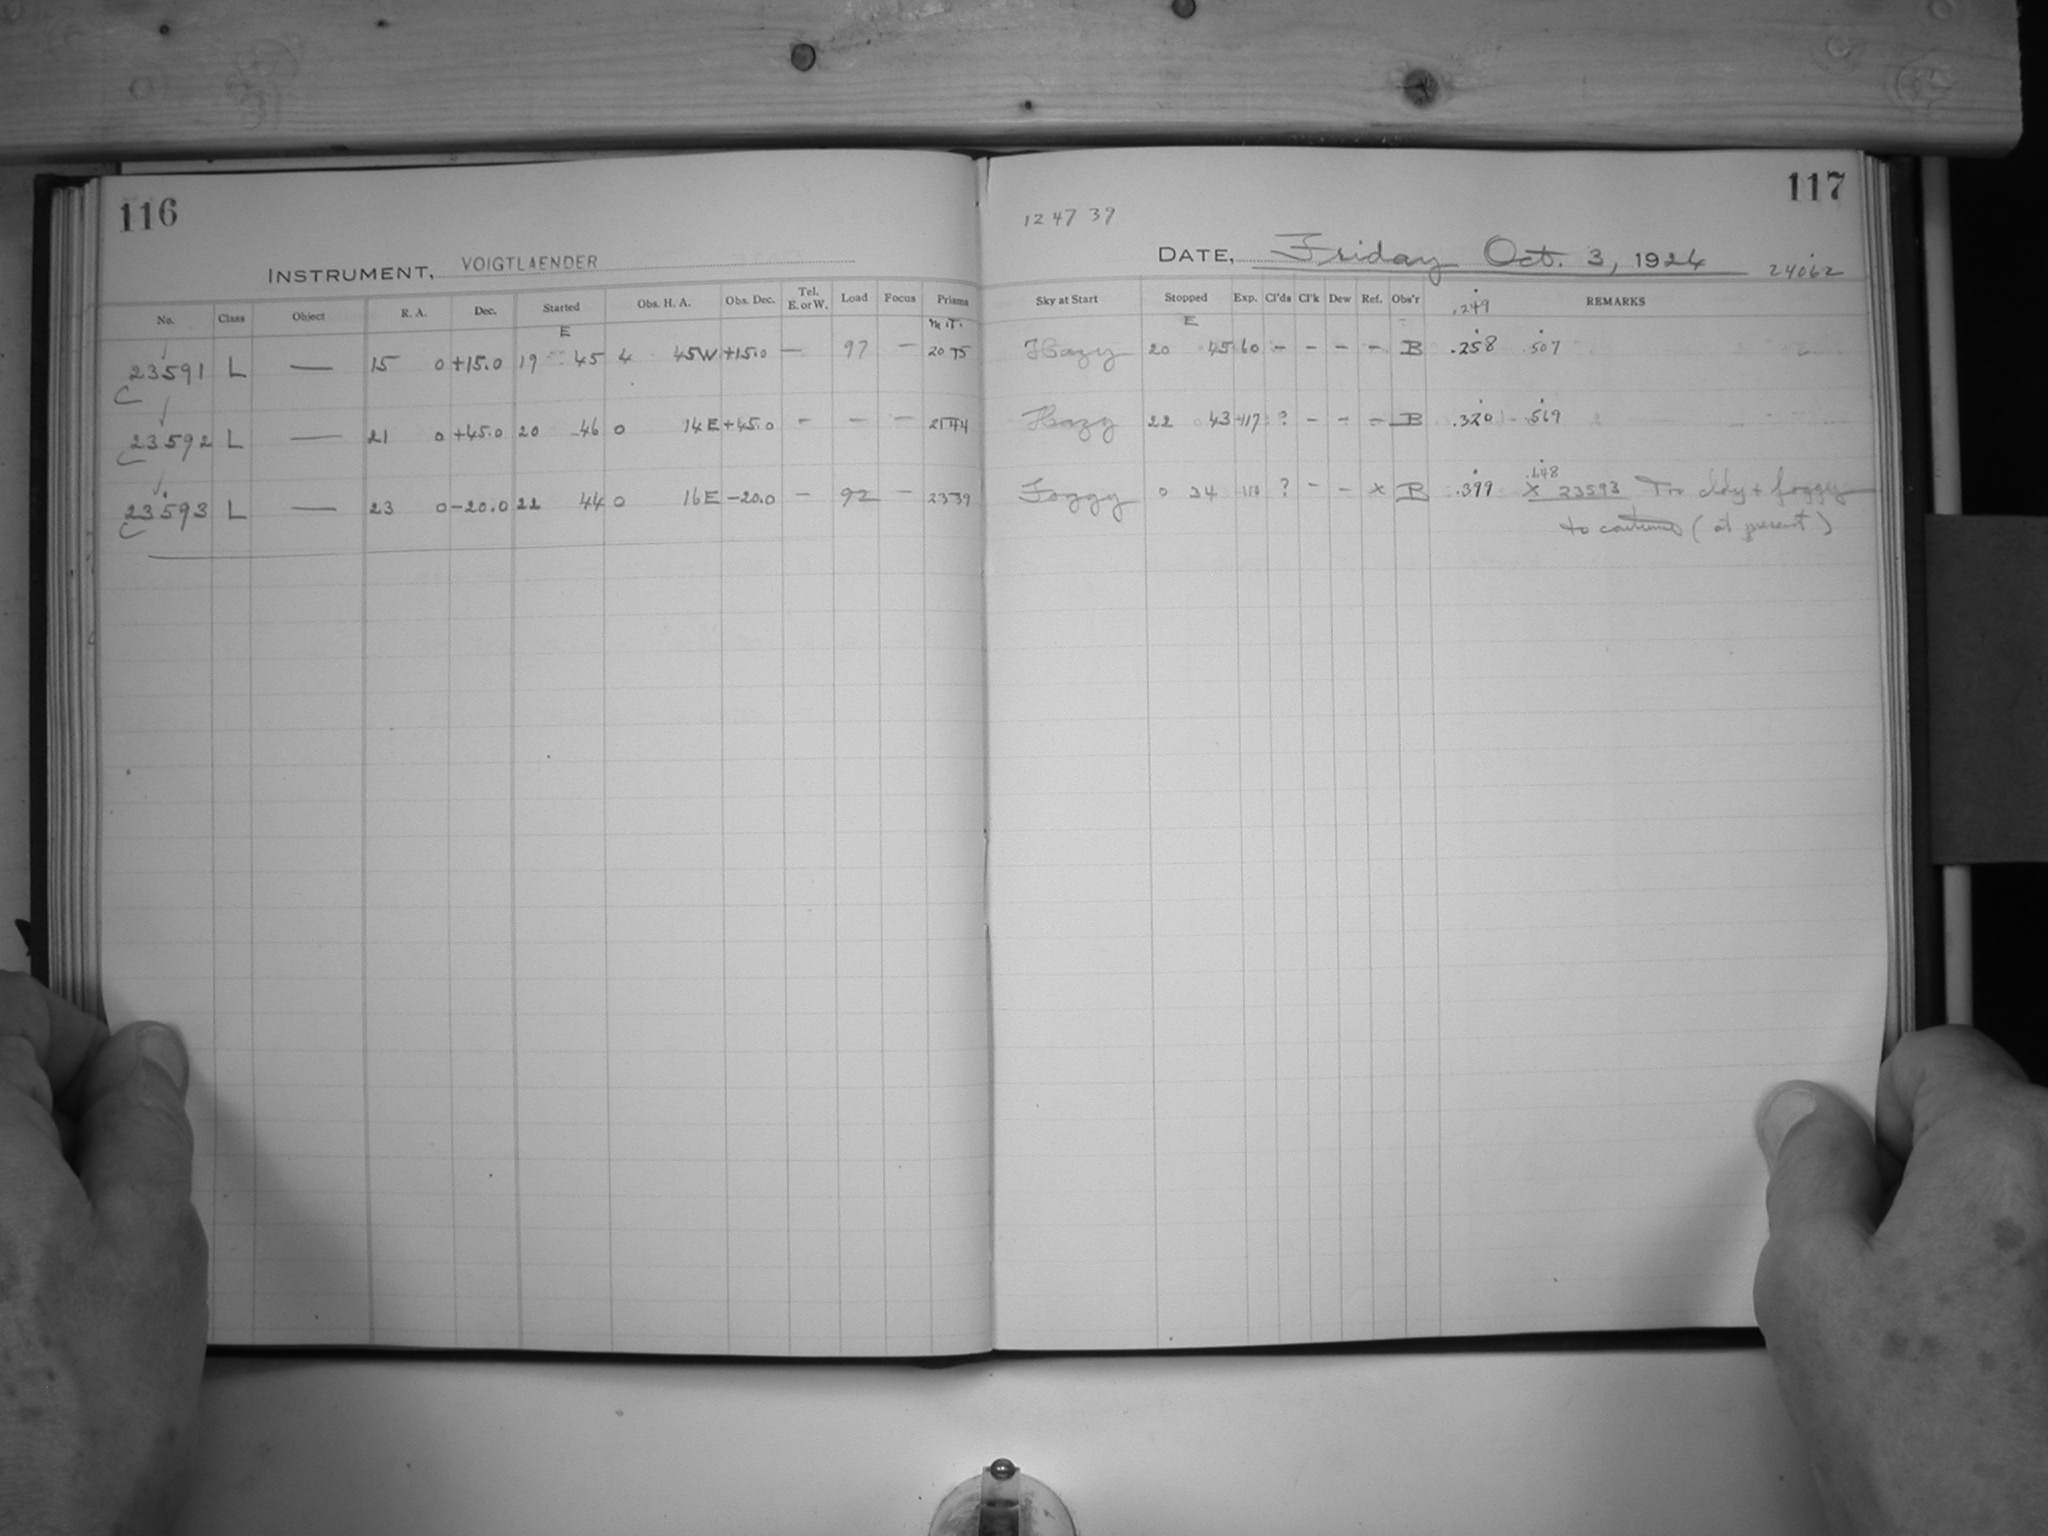 116
INSTRUMENT, VOIGTLAENDER
No. Class Object R. A. Dec. Started Obs. H. A. Obs. Dec. Tel. E. or W. Load Focus Prisms
E M.T.
23591 L — 15 0 +15.0 19 45 4 45W +15.0 — 97 —
23592 L — 21 0 +45.0 20 46 0 14E +45.0 - - - 2144
23593 L — 23 0 -20.0 22 44 0 16E -20.0 - 92 - 2339
117
12 47 39
DATE, Friday Oct. 3, 1924 24062
Sky at Start Stopped Exp. Cl'ds Cl'k Dew Ref. Obs'r .249 REMARKS
E
Hazy 20 45 60 - - - - B .258 .507
Hazy 22 43 117 ? - - - B .320 .569
.648
Foggy 0 34 110 ? - - x B .399 X 23593 Too cldy + foggy
to continue (at present)